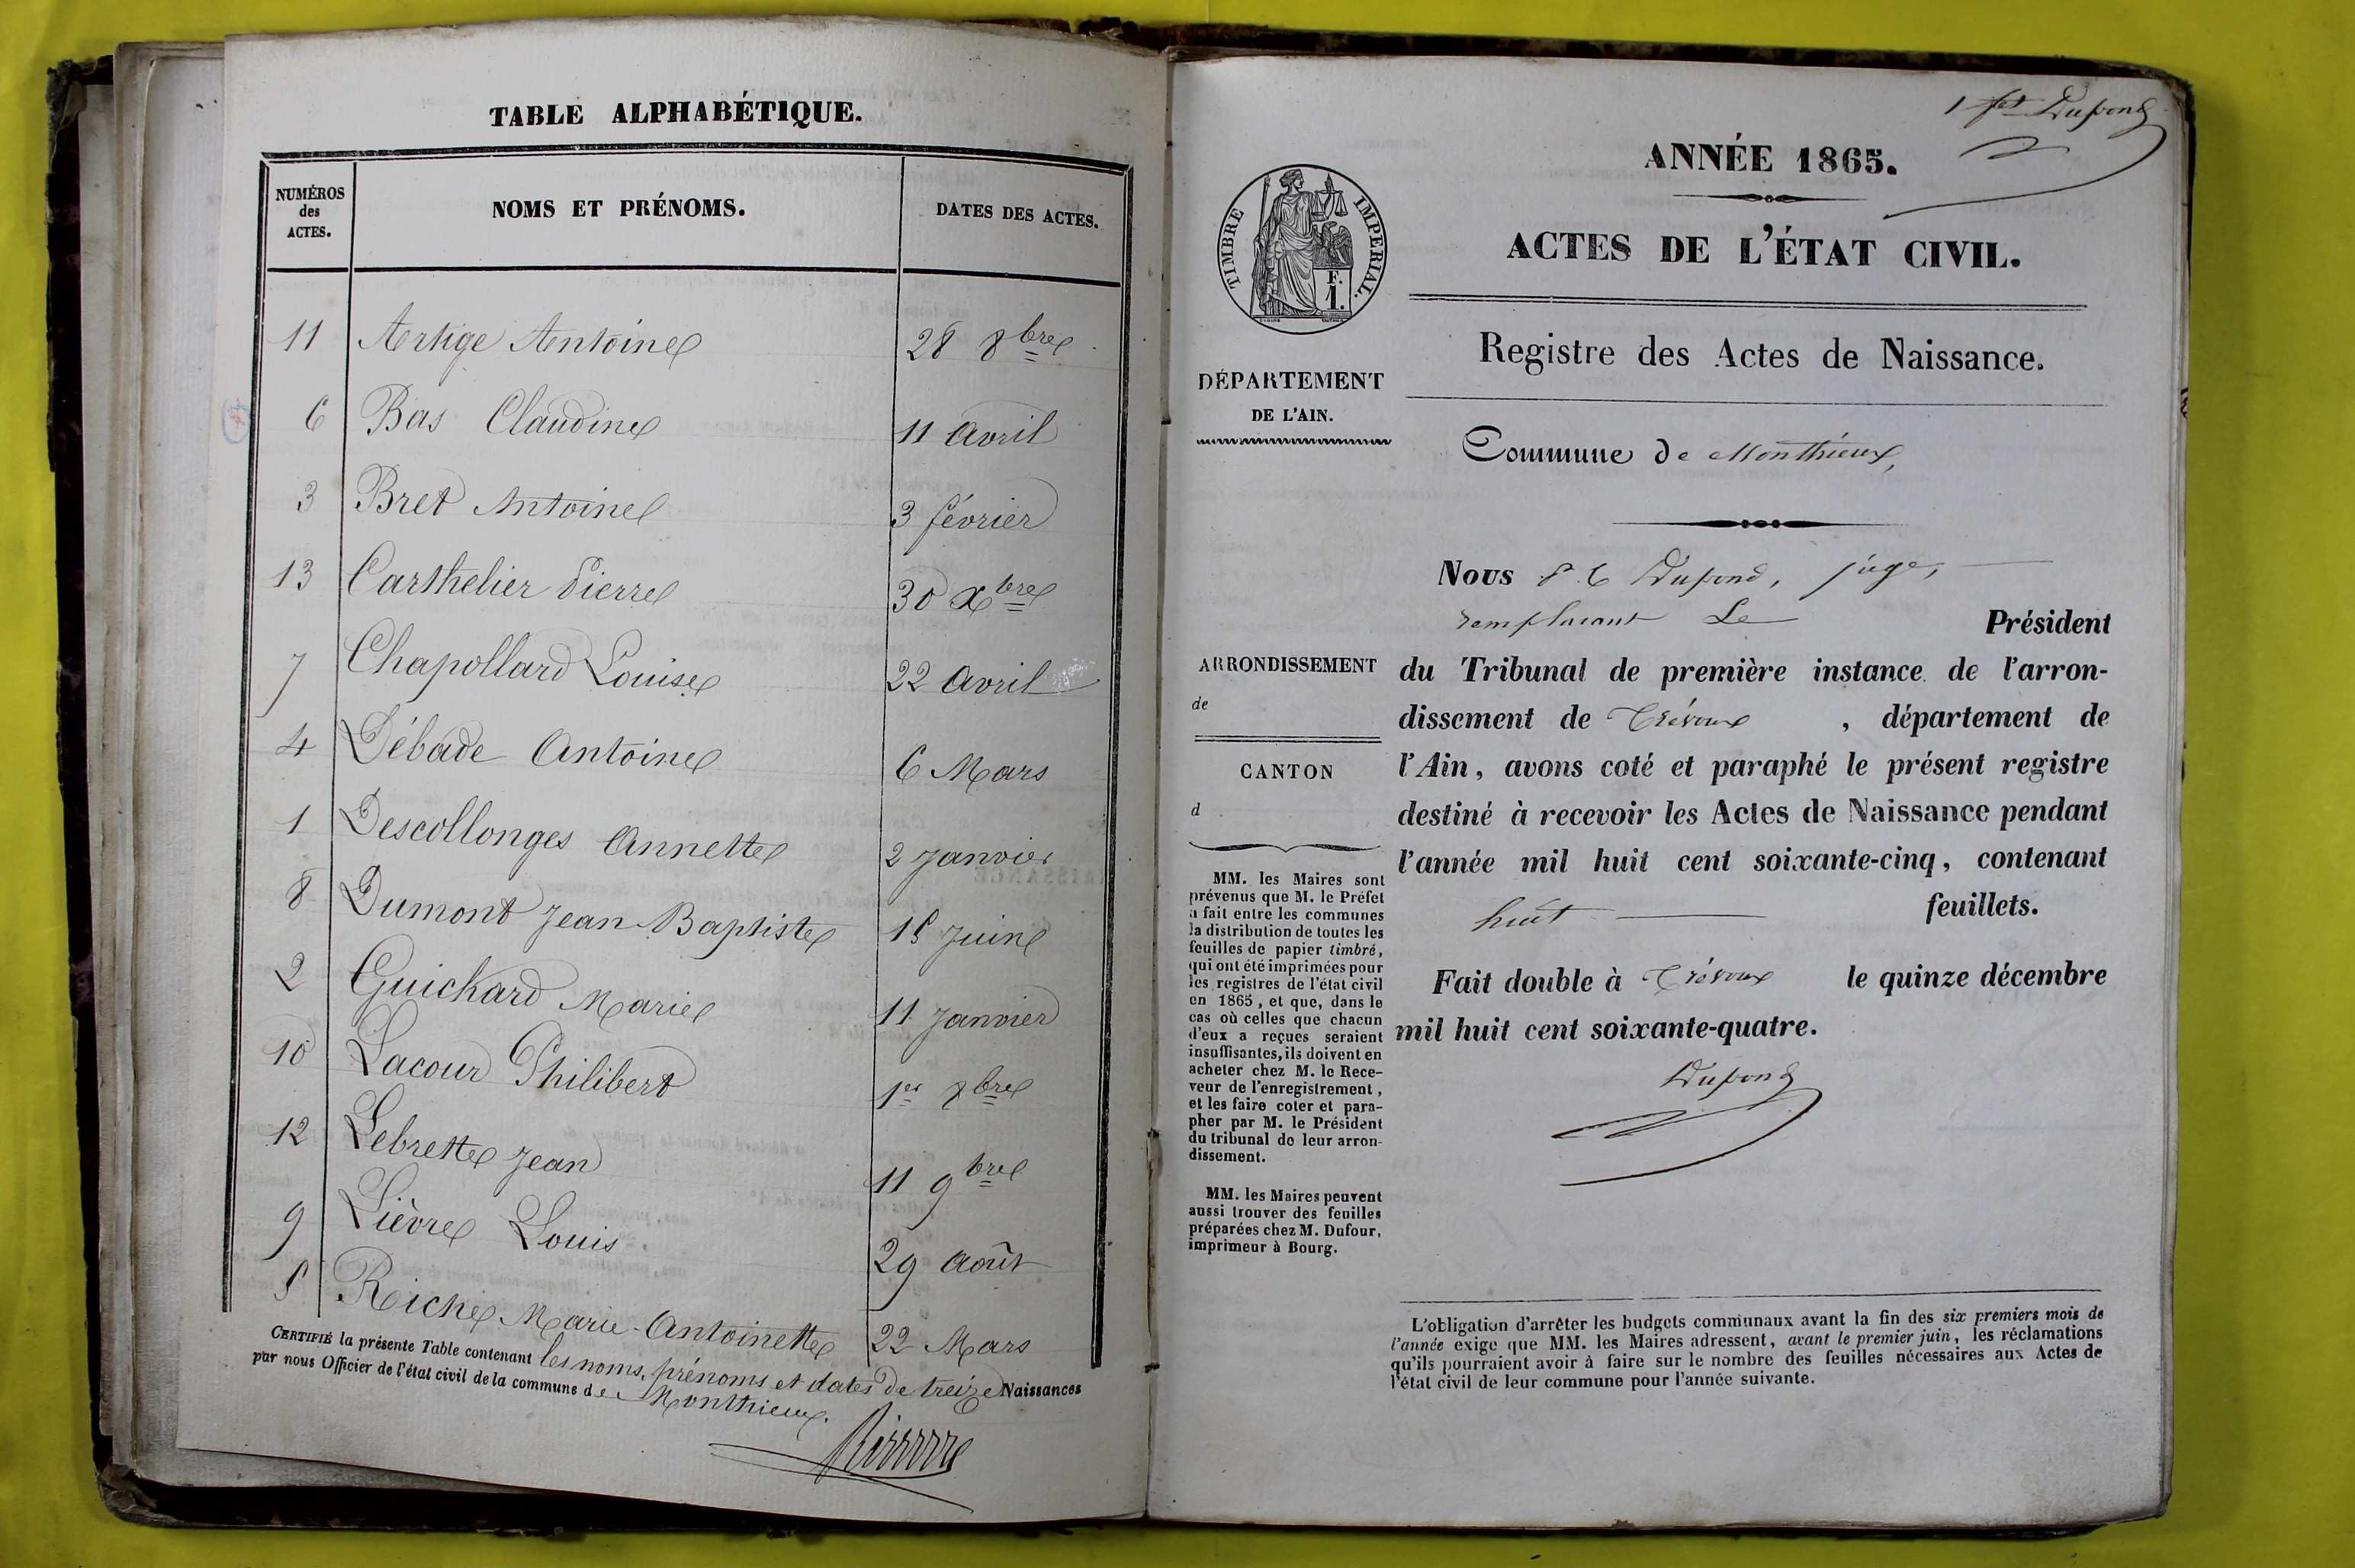 TABLE ALPHABÉTIQUE.
NUMÉROS des ACTES.
NOMS ET PRÉNOMS.
DATES DES ACTES.
11 Artige Antoine 28 8bre
6 Bas Claudine 11 Avril
3 Bret Antoine 3 février
13 Carthelier Pierre 30 Xbre
7 Chapollard Louise 22 Avril
4 Débade Antoine 6 Mars
1 Descollonges Annette 2 Janvier
8 Dumont Jean-Baptiste 15 Juin
2 Guichard Marie 11 Janvier
10 Lacour Philibert 1er 8bre
12 Lebrette Jean 11 9bre
9 Lièvre Louis 29 Août
5 Riche Marie-Antoinette 22 Mars
CERTIFIÉ la présente Table contenant les noms, prénoms et dates de treize Naissances
par nous Officier de l'état civil de la commune de Monthieux.
1 fet Dupond
ANNÉE 1865.
ACTES DE L'ÉTAT CIVIL.
Registre des Actes de Naissance.
TIMBRE IMPÉRIAL.
F.
1.
DÉPARTEMENT
DE L'AIN.
Commune de Monthieux,
Nous Dupond, juge,
remplacant Le Président
du Tribunal de première instance de l'arron-
dissement de Trévoux , département de
l'Ain, avons coté et paraphé le présent registre
destiné à recevoir les Actes de Naissance pendant
l'année mil huit cent soixante-cinq, contenant
huit feuillets.
Fait double à Trévoux le quinze décembre
mil huit cent soixante-quatre.
Dupond
ARRONDISSEMENT
de
CANTON
d
MM. les Maires sont
prévenus que M. le Préfet
a fait entre les communes
la distribution de toutes les
feuilles de papier timbré,
qui ont été imprimées pour
les registres de l'état civil
en 1865, et que, dans le
cas où celles que chacun
d'eux a reçues seraient
insuffisantes, ils doivent en
acheter chez M. le Rece-
veur de l'enregistrement,
et les faire coter et para-
pher par M. le Président
du tribunal de leur arron-
dissement.
MM. les Maires peuvent
aussi trouver des feuilles
préparées chez M. Dufour,
imprimeur à Bourg.
L'obligation d'arrêter les budgets communaux avant la fin des six premiers mois de
l'année exige que MM. les Maires adressent, avant le premier juin, les réclamations
qu'ils pourraient avoir à faire sur le nombre des feuilles nécessaires aux Actes de
l'état civil de leur commune pour l'année suivante.